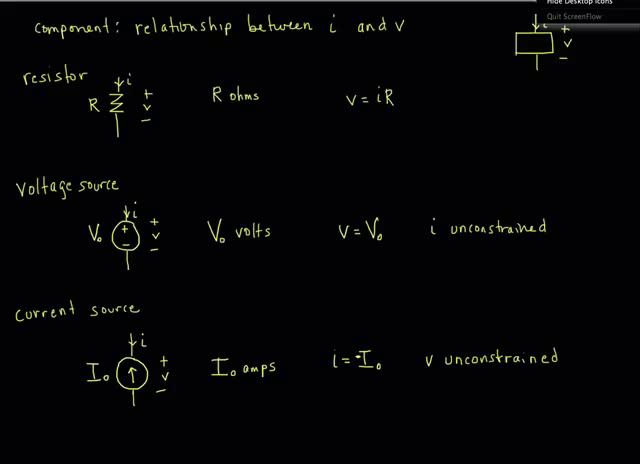 Hide Desktop Icons
Quit ScreenFlow
component: relationship between i and v
i + v −
resistor
R i + v − R ohms v = iR
Voltage source
V₀ + − i + v − V₀ volts v = V₀ i unconstrained
Current source
I₀ i + v − I₀ amps i = -I₀ v unconstrained